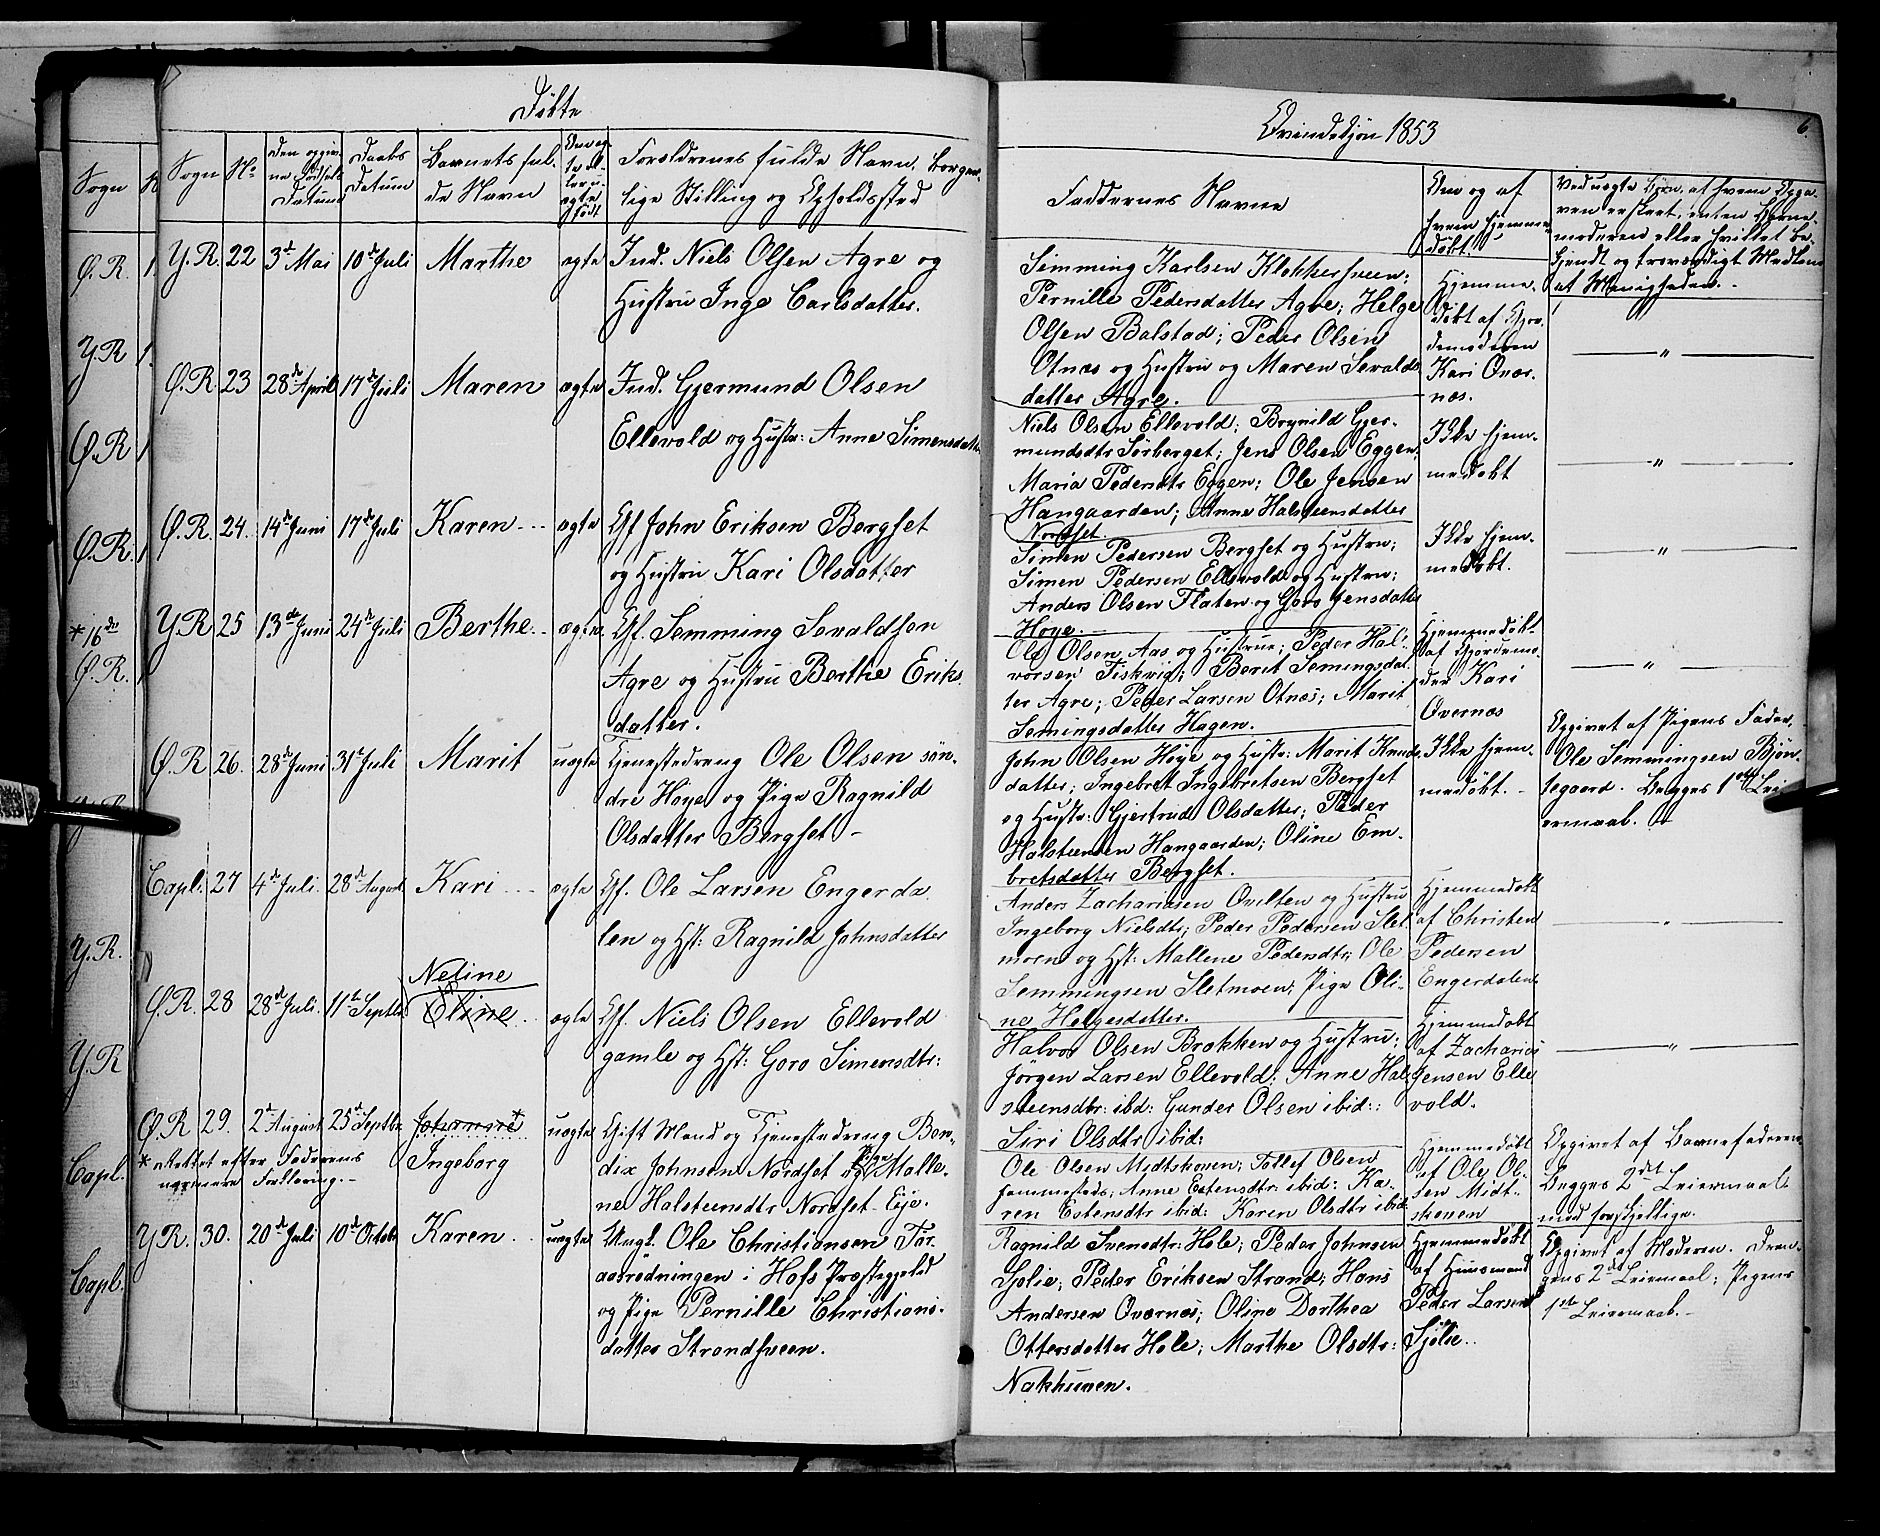 Døbte
Qvindekjøn 1853
6.
Sogn
Sogn
No
Den opgiv-
ne Fødsels
Datum
Daabs
Datum
Barnets ful-
de Navn
Om æg-
te el-
ler u-
ægte
født
Forældrenes fulde Navn, borger-
lige Stilling og Opholdssted
Faddernes Navne
Om og af
hvem hjemme-
døbt.
Ved uægte Børn, af hvem Opga-
ven er skeet, enten Barne-
moderen eller hvilket be-
kjendt og troværdigt Medlem
af Menigheden.
Y.R. 22 3d Mai 10d Juli Marthe ægte Ind. Niels Olsen Agre og
Hustru Inge Carlsdatter.
Semming Karlsen Klokkersveen;
Pernille Pedersdatter Agre; Helge
Olsen Balstad; Peder Olsen
Otnæs og Hustru og Maren Sevalds
datter Agre.
Hjemme-
døbt af Gjor-
demoderen
Kari Over-
næs.
"
Ø.R. 23 28de April 17d Juli Maren ægte Ind. Gjermund Olsen
Ellevold og Hustr: Anne Simensdatter
Niels Olsen Ellevold; Brynild Gjer-
mundsdtr Sørberget; Jens Olsen Eggen;
Maria Pedersdtr Eggen; Ole Jensen
Haugaarden; Anne Halsteensdatter
Nordset.
Ikke hjem-
medøbt
"
Ø.R. 24. 14de Juni 17d Juli Karen ægte Gf John Eriksen Bergset
og Hustru Kari Olsdatter
Simen Pedersen Bergset og Hustru;
Simen Pedersen Ellevold og Hustru;
Anders Olsen Flaten og Goro Jensdatter
Høye.
Ikke hjem-
medøbt.
"
Y.R 25 13de Juni 24d Juli Berthe ægte Gf. Semming Sevaldsen
Agre og Hustru Berthe Eriks
datter.
Ole Olsen Aas og Hustrue; Peder Hal-
vorsen Fiskvig; Berit Semingsdat-
ter Agre; Peder Larsen Otnæs; Marit
Semingsdatter Hagen.
Hjemmedøbt
af Gjordemo-
der Kari
Overnæs
"
Ø.R 26. 28de Juni 31d Juli Marit uægte Tjenestedreng Ole Olsen søn-
dre Høye og Pige Ragnild
Olsdatter Bergset -
John Olsen Høye og Hustr: Marit Knuds
datter; Ingebret Ingebretsen Bergset
og Hustr: Gjertrud Olsdatter; Peder
Halsteensen Haugaarden; Oline Em-
bretsdatter Bergset.
Ikke hjem-
medøbt.
Opgivet af Pigens Fader,
Ole Semmingsen Bjøn-
tegaard. Begges 1ste Lei
ermaal.
Capl. 27 4d Juli. 28d August Kari ægte Gf. Ole Larsen Engerda
len og Hst: Ragnild Johnsdatter
Anders Zachariasen Ovilten og Hustru
Ingeborg Nielsdtr; Peder Pedersen Slet
moen og Hst: Mallene Pedersdtr; Ole
Semmingsen Sletmoen; Pige Oli-
ne Helgesdatter.
Hjemmedøbt
af Christen
Pedersen
Engerdalen
"
Neline
Ø.R. 28 28d Juli. 11te Septbr Oline ægte Gf. Niels Olsen Ellevold
gamle og Hst: Goro Simensdtr:
Halvor Olsen Brækken og Hustru;
Jørgen Larsen Ellevold; Anne Hal-
steensdtr: ibd: Gunder Olsen ibid:;
Siri Olsdtr ibid:
Hjemmedøbt
af Zacharias
Jensen Elle
vold.
"
Ø.R 29. 2d August 25d Septbr Johanne* uægte Gift Mand og Tjenestedreng Ben-
Ingeborg
dix Johnsen Nordset og Pige Malle-
ne Halsteensdtr Nordset-Eje.
* Rettet efter Faderens
nærmere Forklaring.-
Ole Olsen Midtskoven; Tollef Olsen
sammesteds; Anne Estensdtr: ibid: Ka-
ren Estensdtr ibid: Karen Olsdtr ibid
Hjemmedøbt
af Ole Ol-
sen Midt-
skoven
Opgivet af Barnefaderen
Begges 2det Leiermaal
med forskjellige.
Y.R. 30. 20d Juli 10d Octobr Karen uægte Ungk. Ole Christiansen For-
aaredningen i Hofs Præstegjeld
og Pige Pernille Christians-
datter Strandsveen.
Ragnild Svensdtr: Hole; Peder Johnsen
Sjolie; Peder Eriksen Strand; Hans
Andersen Overnæs; Oline Dorthea
Ottersdatter Hole; Marthe Olsdtr:
Nakhunen.
Hjemmedøbt
af Huusmand
Peder Larsen
Sjølie.
Opgivet af Moderen. Dren-
gens 2det Leiermaal; Pigens
1ste Leiermaal.-
Ø.R. 1.
Y.R 1.
Ø.R 1
Ø.R. 1
* 16de
Ø.R. 1
Y.R.
Y.R
Capl.
Capl.